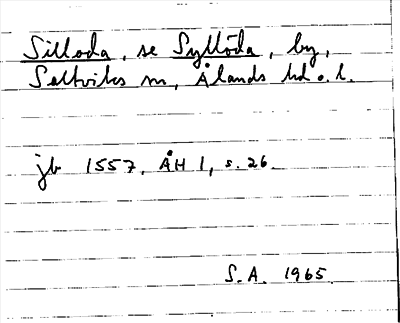 Silloda, se Syllöda, by,
Saltviks sn, Ålands hd o. l.
jb 1557, ÅH 1, s. 26
S.A. 1965.